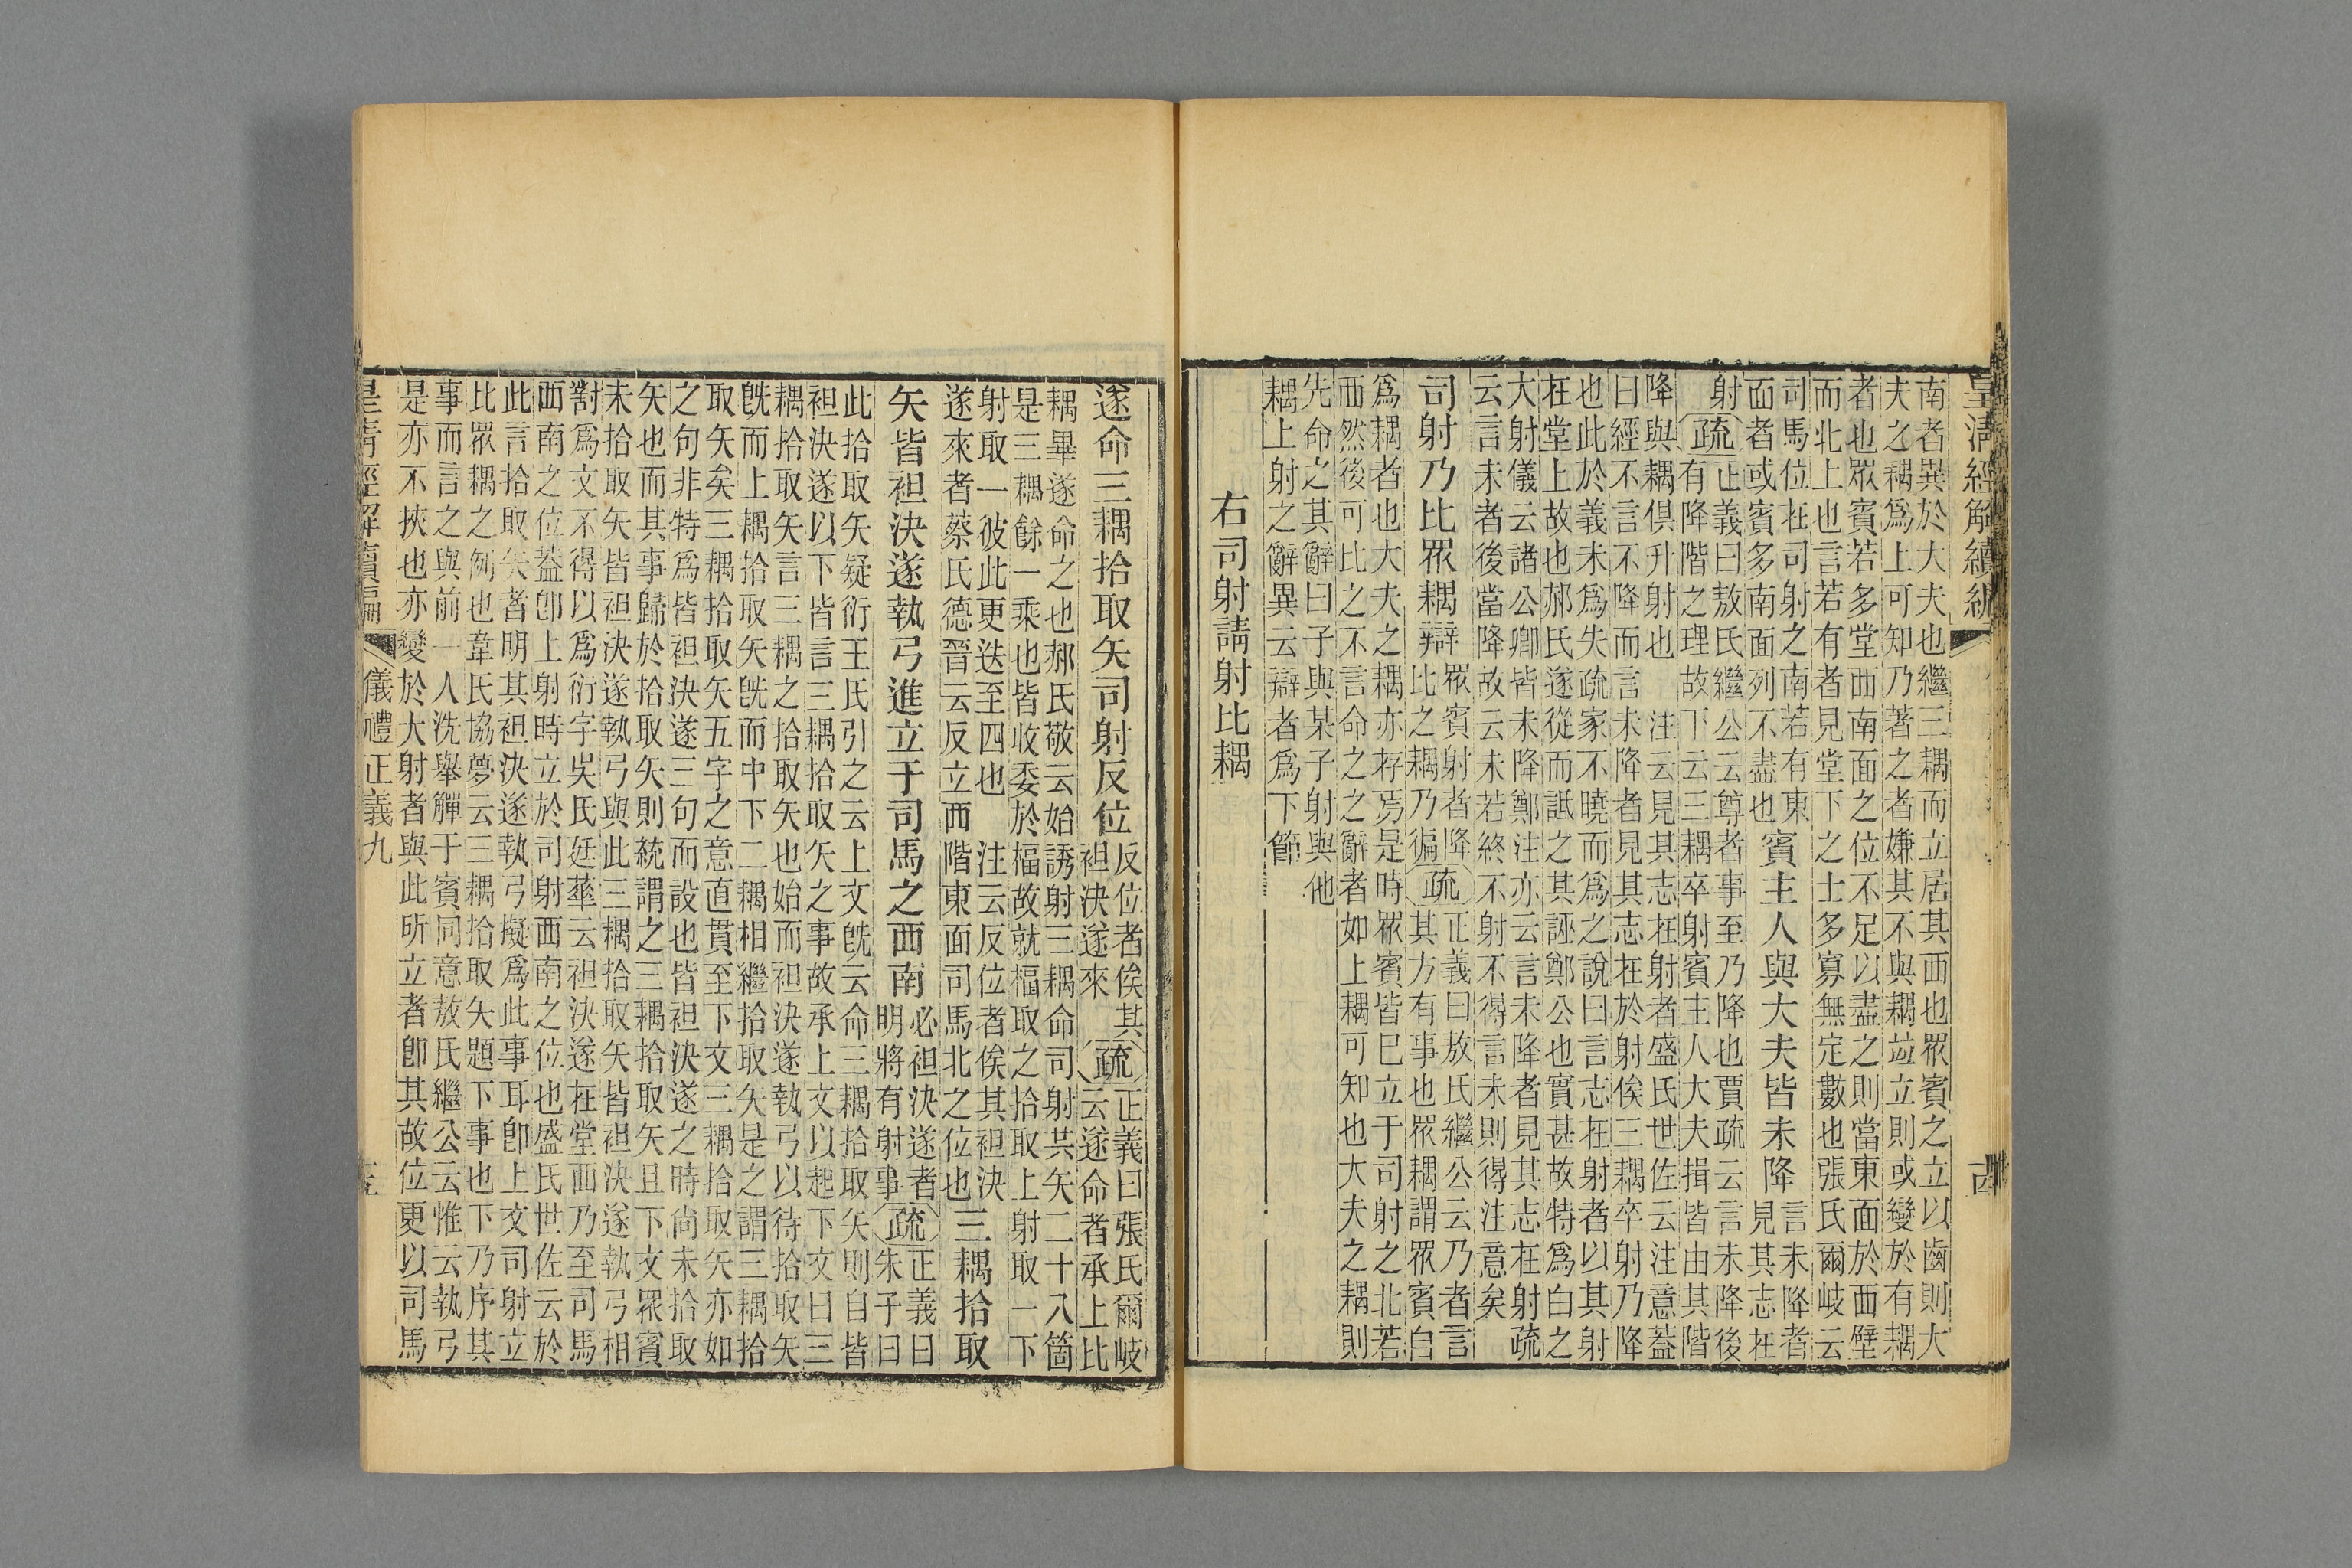 皇清經解續編
南者異於大夫也繼三耦而立居其西也眾賓之立以齒則大
夫之耦爲上可知乃著之者嫌其不與耦竝立則或變於有耦
者也眾賓若多堂西南面之位不足以盡之則當東面於西壁
而北上也言若有者見堂下之士多寡無定數也張氏爾岐云
司馬位在司射之南若有東
面者或賓多南面列不盡也
賓主人與大夫皆未降
言未降者
見其志在
射疏正義曰敖氏繼公云尊者事至乃降也賈疏云言未降後
有降階之理故下云三耦卒射賓主人大夫揖皆由其階
降與耦俱升射也 注云見其志在射者盛氏世佐云注意蓋
曰經不言不降而言未降者見其志在於射俟三耦卒射乃降
也此於義未爲失疏家不曉而爲之說曰言志在射者以其射
在堂上故也郝氏遂從而詆之其誣鄭公也實甚故特爲白之
大射儀云諸公卿皆未降鄭注亦云言未降者見其志在射疏
云言未者後當降故云未若終不射不得言未則得注意矣
司射乃比眾耦辯
眾賓射者降
比之耦乃徧
疏
正義曰敖氏繼公云乃者言
其方有事也眾耦謂眾賓自
爲耦者也大夫之耦亦存焉是時眾賓皆巳立于司射之北若
而然後可比之不言命之之辭者如上耦可知也大夫之耦則
先命之其辭曰子與某子射與他
耦上射之辭異云辯者爲下節
右司射請射比耦
遂命三耦拾取矢司射反位
反位者俟其
袒決遂來
疏
正義曰張氏爾岐
云遂命者承上比
耦畢遂命之也郝氏敬云始誘射三耦命司射共矢二十八箇
是三耦餘一乘也皆收委於楅故就楅取之拾取上射取一下
射取一彼此更迭至四也 注云反位者俟其袒決
遂來者蔡氏德晉云反立西階東面司馬北之位也
三耦拾取
矢皆袒決遂執弓進立于司馬之西南
必袒決遂者
明將有射事
疏
正義曰
朱子曰
此拾取矢疑衍王氏引之云上文旣云命三耦拾取矢則自皆
袒決遂以下皆言三耦拾取矢之事故承上文以起下文曰三
耦拾取矢言三耦之拾取矢也始而袒決遂執弓以待拾取矢
旣而上耦拾取矢旣而中下二耦相繼拾取矢是之謂三耦拾
取矢矣三耦拾取矢五字之意直貫至下文三耦拾取矢亦如
之句非特爲皆袒決遂三句而設也皆袒決遂之時尚未拾取
矢也而其事歸於拾取矢則統謂之三耦拾取矢且下文眾賓
未拾取矢皆袒決遂執弓與此三耦拾取矢皆袒決遂執弓相
對爲文不得以爲衍字吳氏廷華云袒決遂在堂西乃至司馬
西南之位蓋卽上射時立於司射西南之位也盛氏世佐云於
此言拾取矢者明其袒決遂執弓擬爲此事耳卽上文司射立
比眾耦之例也韋氏協夢云三耦拾取矢題下事也下乃序其
事而言之與前一人洗舉觶于賓同意敖氏繼公云惟云執弓
是亦不挾也亦變於大射者與此所立者卽其故位更以司馬
皇清經解續編 儀禮正義九